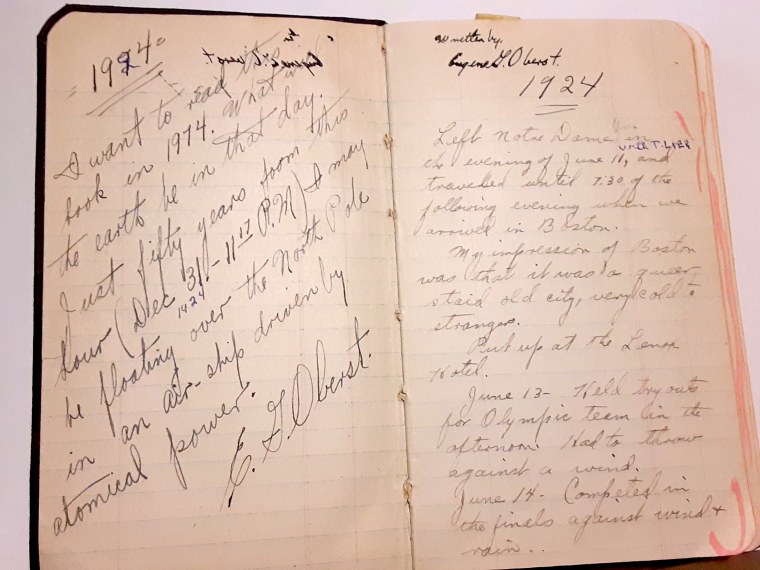 1924
I want to read this
book in 1974. What will
the earth be in that day.
Just fifty years from this
hour (Dec 31 - 11 15 P.M) I may
1924
be floating over the North Pole
in an air-ship driven by
atomical power.
E. G. Oberst.
written by.
Eugene G. Oberst.
1924
Left Notre Dame in
the evening of June 11, and
traveled until 7:30 of the
following evening when we
arrived in Boston.
My impression of Boston
was that it was a queer,
staid old city, very cold to
strangers.
Put up at the Lenox
Hotel.
June 13- Held try outs
for Olympic team in the
afternoon. Had to throw
against a wind.
June 14- Competed in
the finals against wind +
rain..